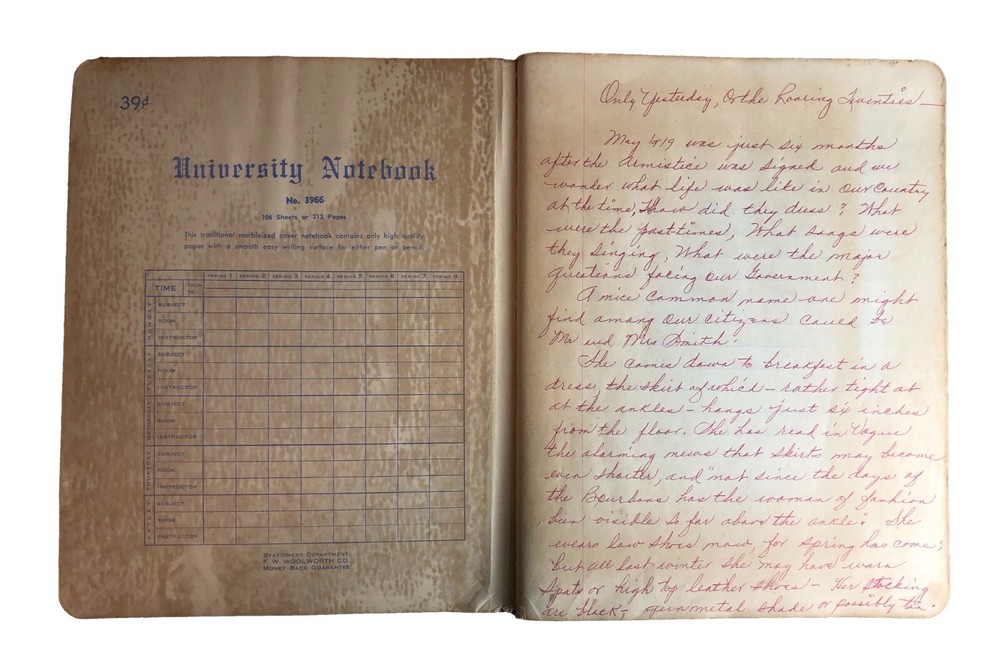 39¢
University Notebook
No. 3966
106 Sheets or 212 Pages
This traditional marbleized cover notebook contains only high quality
paper with a smooth easy writing surface for either pen or pencil.
PERIOD 1 PERIOD 2 PERIOD 3 PERIOD 4 PERIOD 5 PERIOD 6 PERIOD 7 PERIOD 8
TIME FROM
TO
MONDAY
SUBJECT
ROOM
INSTRUCTOR
TUESDAY
SUBJECT
ROOM
INSTRUCTOR
WEDNESDAY
SUBJECT
ROOM
INSTRUCTOR
THURSDAY
SUBJECT
ROOM
INSTRUCTOR
FRIDAY
SUBJECT
ROOM
INSTRUCTOR
STATIONERY DEPARTMENT
F. W. WOOLWORTH CO.
MONEY BACK GUARANTEE
Only Yesterday, Or the Roaring Twenties—
May 1919 was just six months
after the Armistice was signed and we
wonder what life was like in Our Country
at the time, How did they dress? What
were the pasttimes, What songs were
they singing, What were the major
questions facing Our Government?
A nice common name one might
find among Our citizens could be
Mr and Mrs Smith.
She comes down to breakfast in a
dress, the skirt of which — rather tight at
at the ankles — hangs just six inches
from the floor. She has read in Vogue
the alarming news that skirts may become
even shorter, and "not since the days of
the Bourbons has the woman of fashion
been visible so far above the ankle". She
wears low shoes now, for spring has come;
but all last winter she may have worn
spats or high top leather shoes — Her stocking
are black, gunmetal shade or possibly tan.